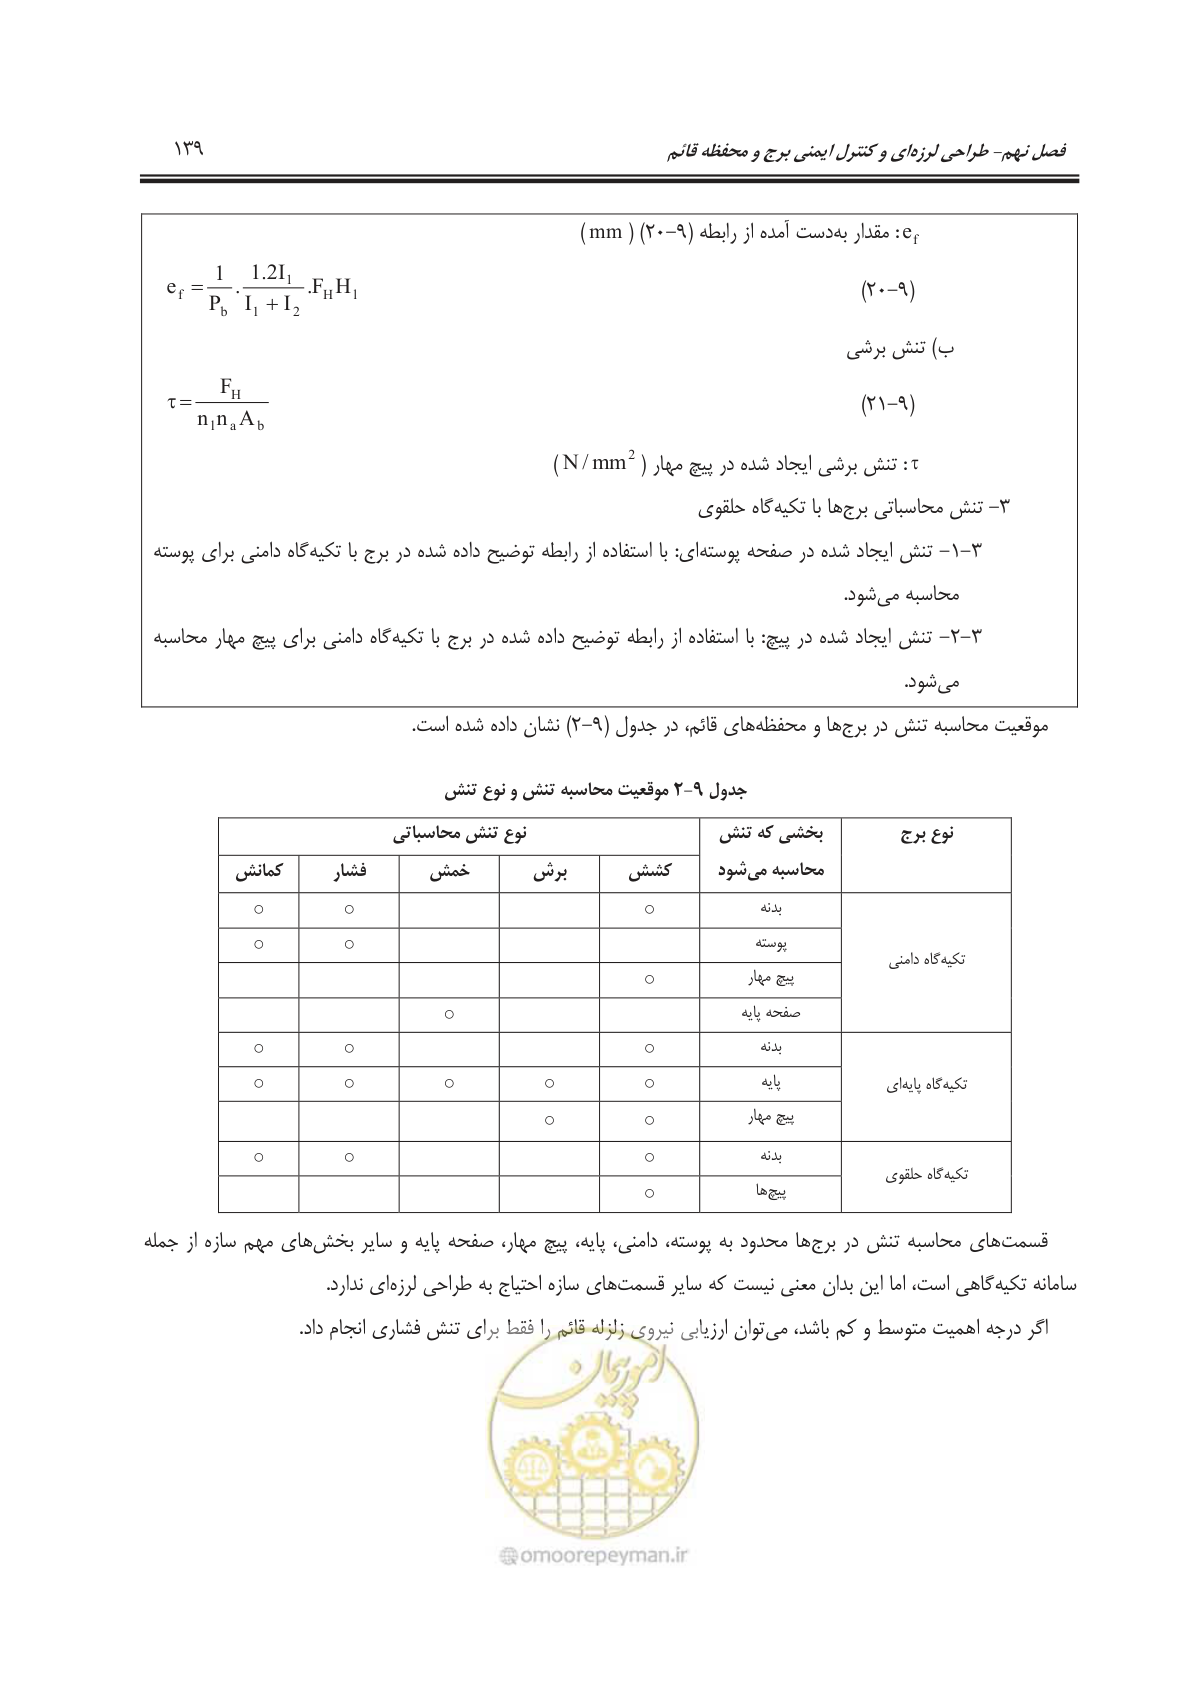 فصل نهم- طراحی لرزه‌ای و کنترل ایمنی برج و محفظه قائم ۱۳۹
e_f : مقدار به‌دست آمده از رابطه (۹-۲۰) ( mm )
(۹-۲۰) e_f = 1/P_b . 1.2I_1/(I_1 + I_2) .F_H H_1
ب) تنش برشی
(۹-۲۱) τ = F_H/(n_1 n_a A_b)
τ : تنش برشی ایجاد شده در پیچ مهار ( N/mm² )
۳- تنش محاسباتی برج‌ها با تکیه‌گاه حلقوی
۳-۱- تنش ایجاد شده در صفحه پوسته‌ای: با استفاده از رابطه توضیح داده شده در برج با تکیه‌گاه دامنی برای پوسته
محاسبه می‌شود.
۳-۲- تنش ایجاد شده در پیچ: با استفاده از رابطه توضیح داده شده در برج با تکیه‌گاه دامنی برای پیچ مهار محاسبه
می‌شود.
موقعیت محاسبه تنش در برج‌ها و محفظه‌های قائم، در جدول (۹-۲) نشان داده شده است.
جدول ۹-۲ موقعیت محاسبه تنش و نوع تنش
نوع برج بخشی که تنش نوع تنش محاسباتی
محاسبه می‌شود کشش برش خمش فشار کمانش
بدنه ○ ○ ○
پوسته ○ ○
تکیه‌گاه دامنی
پیچ مهار ○
صفحه پایه ○
بدنه ○ ○ ○
تکیه‌گاه پایه‌ای پایه ○ ○ ○ ○ ○
پیچ مهار ○ ○
بدنه ○ ○ ○
تکیه‌گاه حلقوی
پیچ‌ها ○
قسمت‌های محاسبه تنش در برج‌ها محدود به پوسته، دامنی، پایه، پیچ مهار، صفحه پایه و سایر بخش‌های مهم سازه از جمله
سامانه تکیه‌گاهی است، اما این بدان معنی نیست که سایر قسمت‌های سازه احتیاج به طراحی لرزه‌ای ندارد.
اگر درجه اهمیت متوسط و کم باشد، می‌توان ارزیابی نیروی زلزله قائم را فقط برای تنش فشاری انجام داد.
امور پیمان
@omoorepeyman.ir